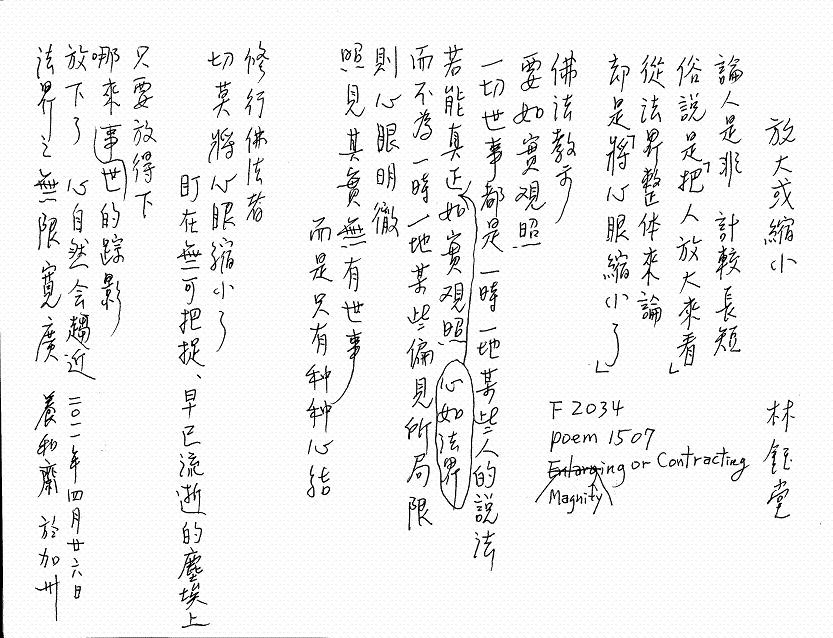 放大或縮小 林鈺堂
論人是非 計較長短
俗說是「把人放大來看」
從法界整体來論
却是「將心眼縮小了」
佛法教示
要如實观照
一切世事都是一時一地某些人的說法
若能真正如實观照 心如法界
而不為一時一地某些偏見所局限
則心眼明徹
照見其實無有世事
而是只有种种心結
修行佛法者
切莫將心眼縮小了
盯在無可把捉、早已流逝的塵埃上
只要放得下
哪來事世的踪影
放下了 心自然会趨近
法界之無限寬廣
二〇一一年四月廿六日
養和齋 於加州
F 2034
poem 1507
Enlarging or Contracting
Magnify